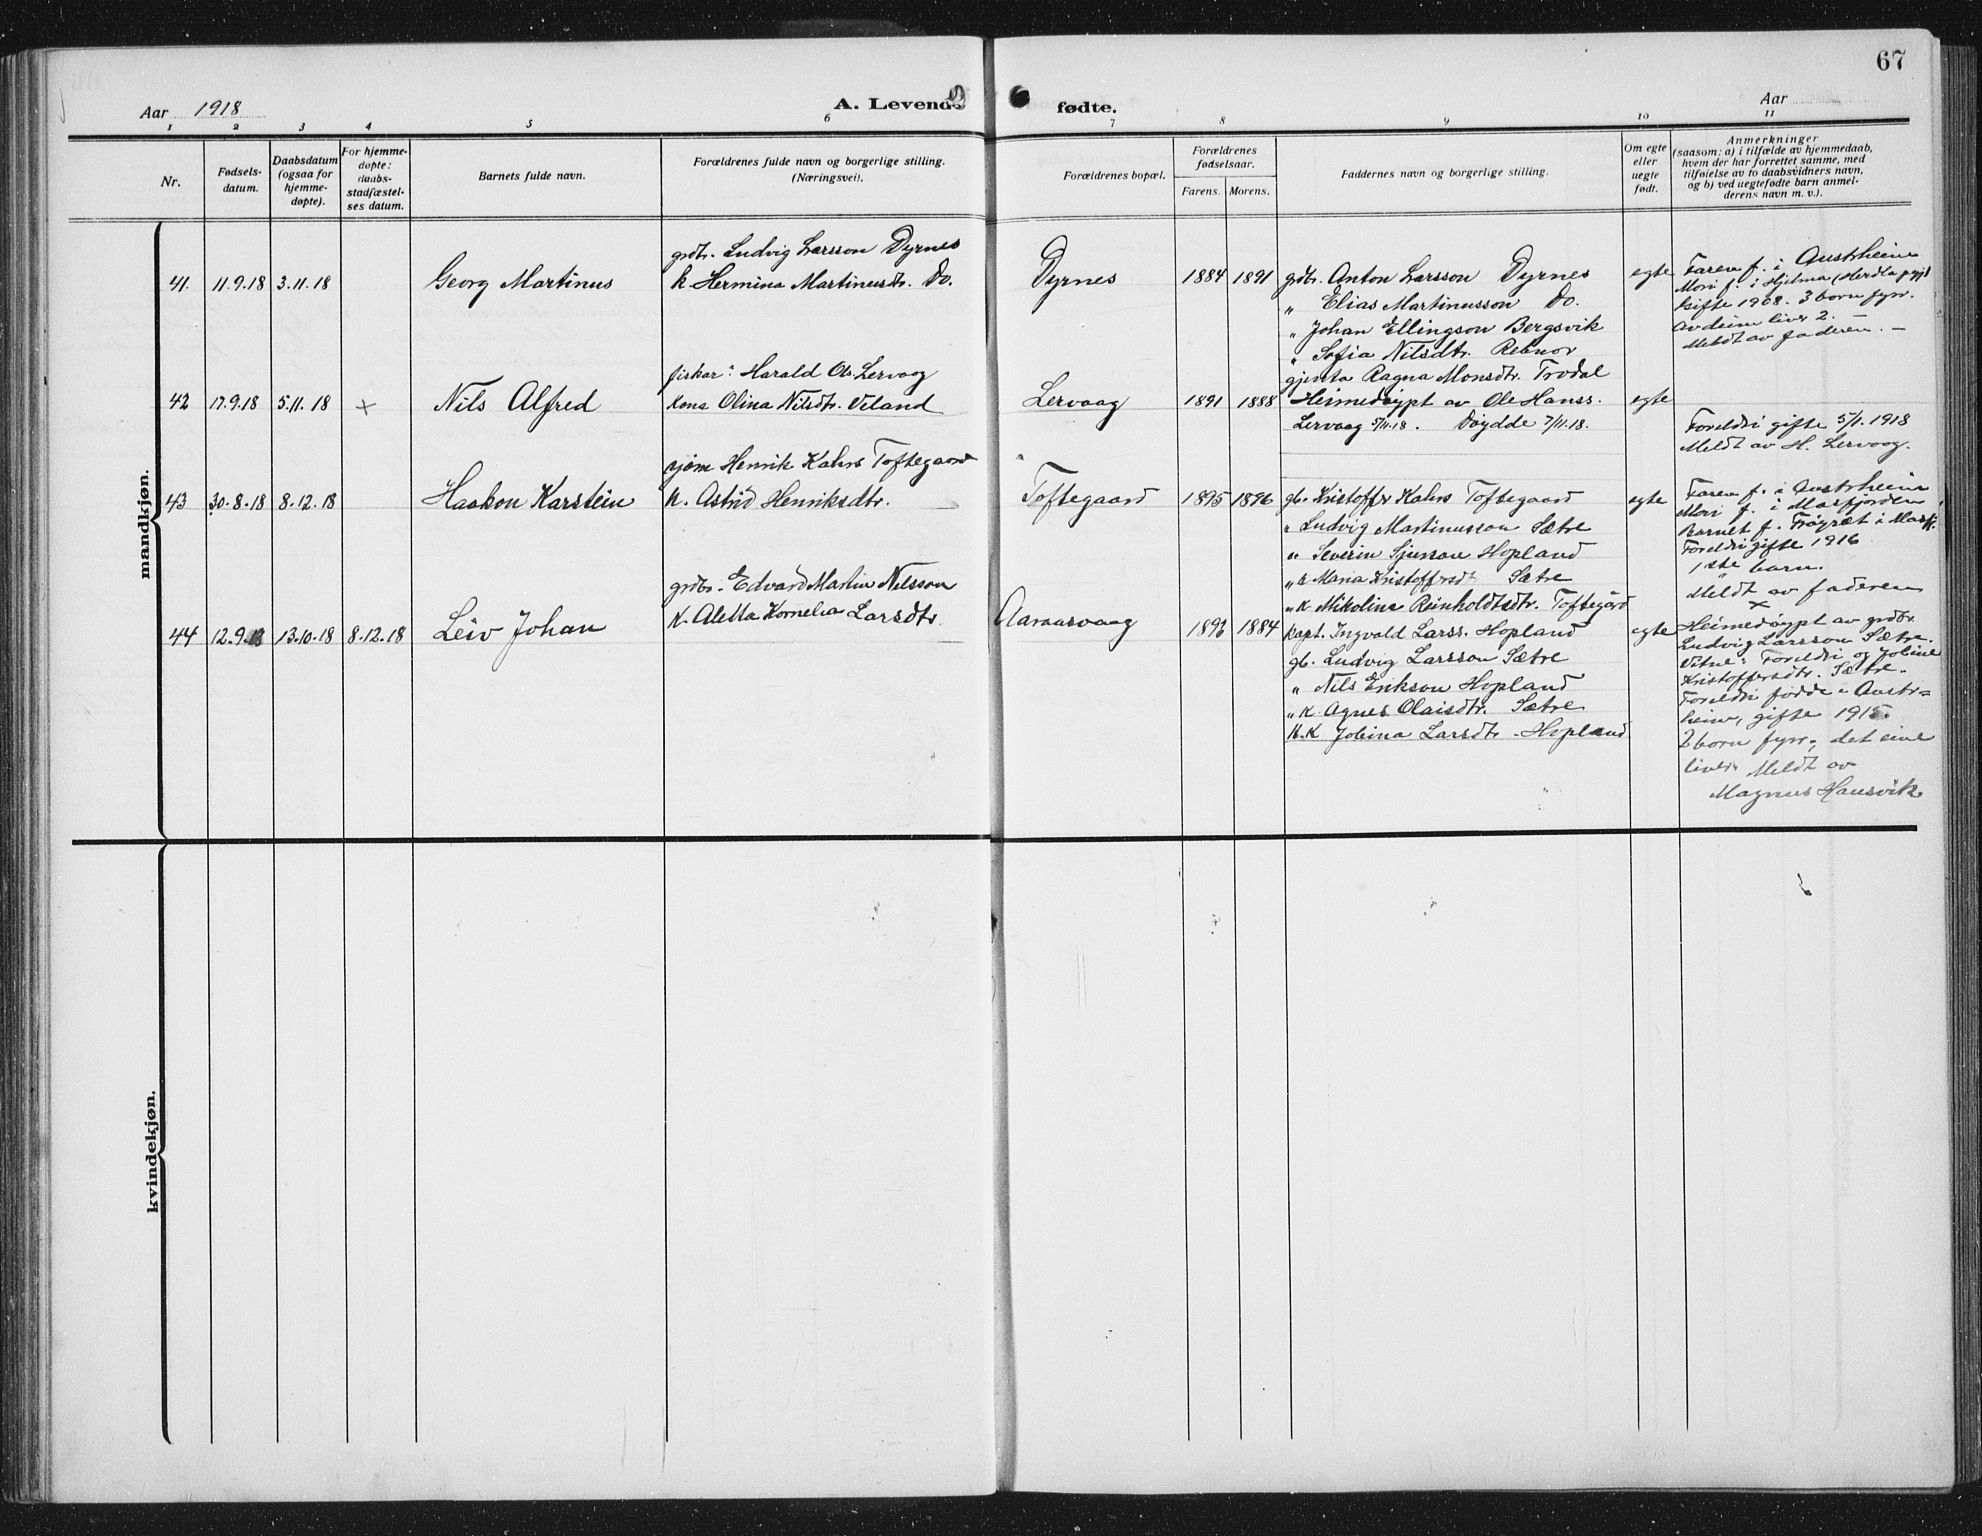 67
Aar 1918
A. Levende
fødte.
Aar
1 2 3 4 5 6 7 8 9 10 11
Nr.
Fødsels-
datum.
Daabsdatum
(ogsaa for
hjemme-
døpte).
For hjemme-
døpte:
daabs-
stadfæstel-
ses datum.
Barnets fulde navn.
Forældrenes fulde navn og borgerlige stilling.
(Næringsvei).
Forældrenes bopæl.
Forældrenes
fødselsaar.
Farens. Morens.
Faddernes navn og borgerlige stilling.
Om egte
eller
uegte
født.
Anmerkninger
(saasom: a) i tilfælde av hjemmedaab,
hvem der har forrettet samme, med
tilføielse av to daabsvidners navn,
og b) ved uegtefødte barn anmel-
derens navn m. v.).
mandkjøn.
41. 11.9.18 3.11.18
Georg Martinus
grdbr. Ludvig Larsson Dyrnes
k. Hermina Martinusdtr. Do.
Dyrnes
1884 1891
grdbr. Anton Larsson Dyrnes
" Elias Martinusson Do.
" Johan Ellingson Bergsvik
" Sofia Nilsdtr. Rebnor
gjenta Ragna Monsdtr. Trodal
egte
Faren f. i Austrheim
Mori f. i Hjelma (Herdla pgjd
Gifte 1908. 3 born fyrr.
Av deim liver 2. —
Meldt av faderen. —
42 17.9.18 5.11.18 +
Nils Alfred
fiskar: Harald Ols. Lervaag
Kona Olina Nilsdtr. Veland
Lervaag
1891 1888
Heimedøypt av Ole Hanss.
Lervaag 5/11.18. Døydde 7/11.18.
egte
Foreldri gifte 5/1. 1918
Meldt av H. Lervaag.
43 30.8.18 8.12.18
Haakon Karstein
sjøm Henrik Kahrs Toftegaard
k. Astrid Henriksdtr.
Toftegaard
1895 1896
gb. Kristoffer Kahrs Toftegaard
" Ludvig Martinusson Sætre
" Severin Sjursson Hopland
" k Maria Kristoffersdt Sætre
" K Mikoline Reinholdtsdtr. Toftegård
egte
Faren f. i Austrheim
Mori f. i Masfjorden
Barnet f. Frøyset i Masfj.
Foreldri gifte 1916
1ste barn.
Meldt av faderen
44 12.9.18 13.10.18 8.12.18
Leiv Johan
grdbr. Edvard Martin Nilsson
K. Aletta Kornelia Larsdtr
Aaraasvaag
1893 1884
kapt. Ingvald Larss. Hopland
gb. Ludvig Larsson Sætre
" Nils Erikson Hopland
" K Agnes Olaisdtr. Sætre
K. K Jobina Larsdtr Hopland
egte
x
Heimedøypt av grdbr.
Ludvig Larsson Sætre.
Vitne: Foreldri og Jobine
Kristoffersdtr. Sætre.
Foreldri fødde i Austr-
heim, gifte 1915.
2 born fyrr, det eine
liver. Meldt av
Magnus Hansvik
kvindekjøn.